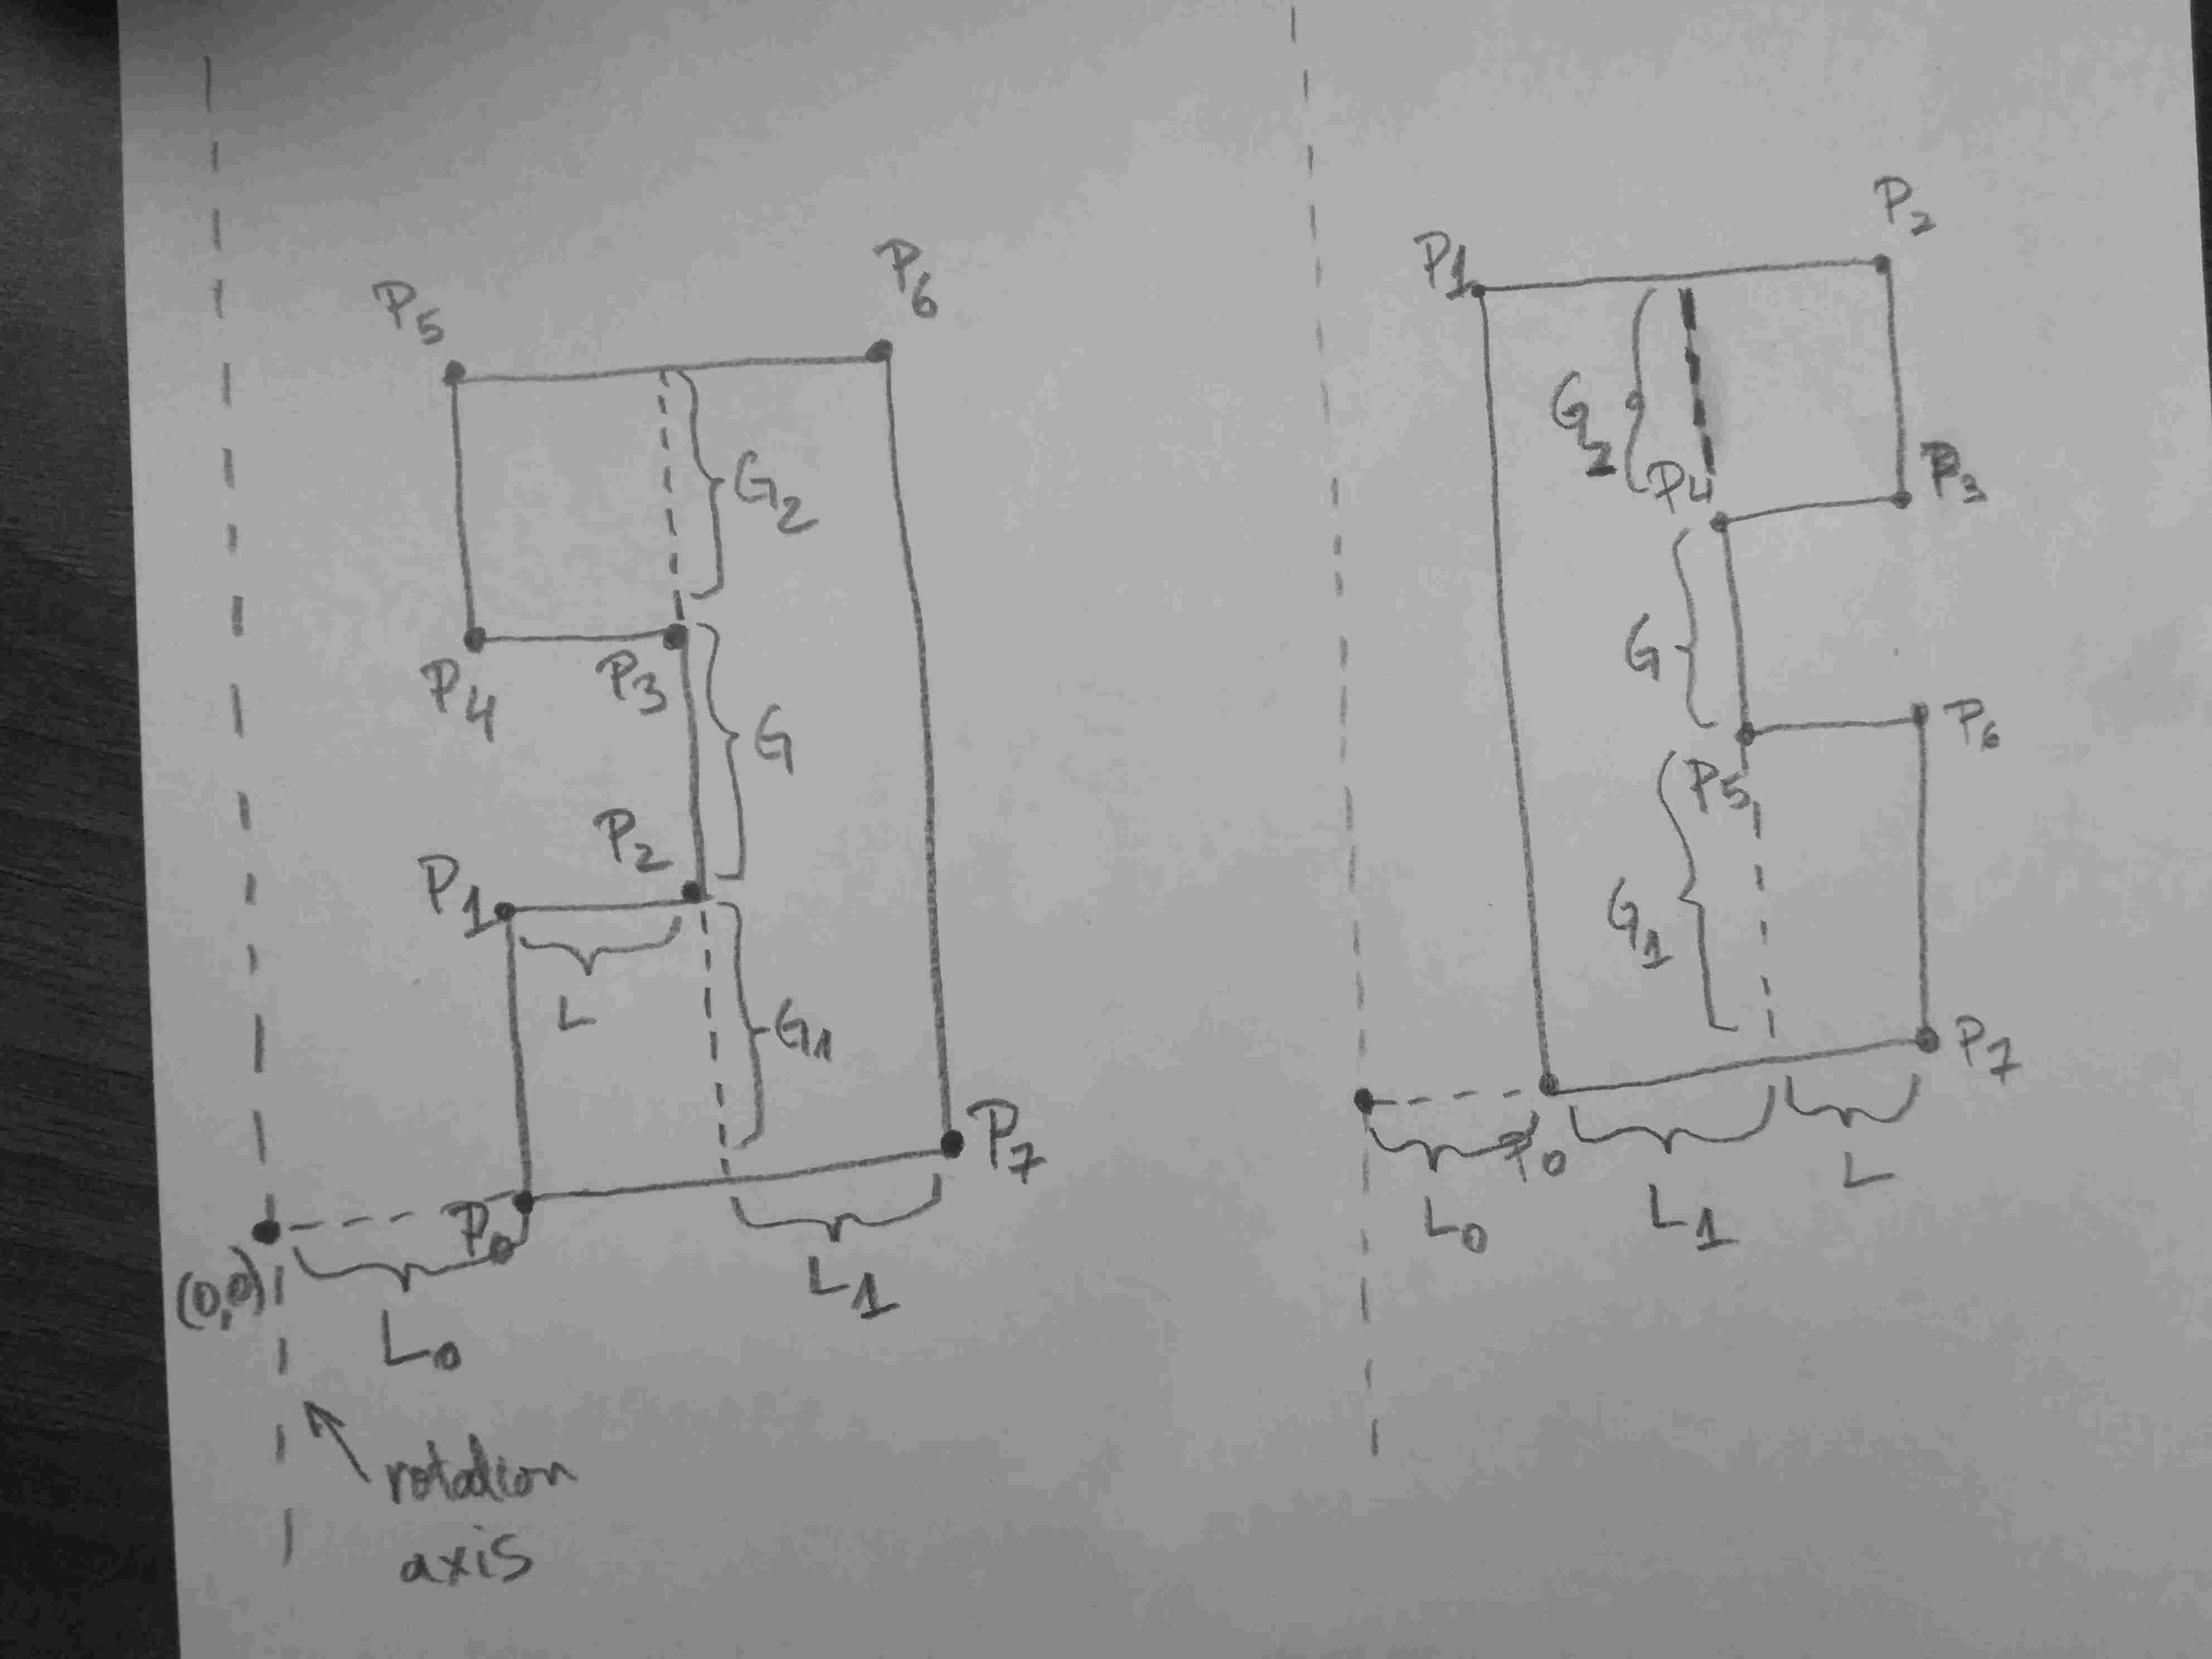 P5
P6
G2
P4
P3
G
P2
P1
L
G1
P0
P7
(0,0)
L0
L1
rotation
axis
P1
P2
G2
P4
P3
G
P6
P5
G1
P7
P0
L0
L1
L